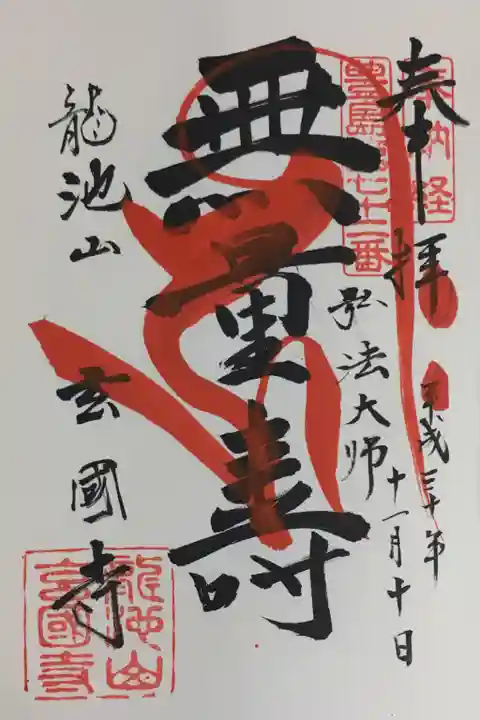 奉拝
奉納経
平成三十年
十一月十日
豊島 七十二番
弘法大師
無量寿
龍池山
玄國寺
龍池山
玄國寺